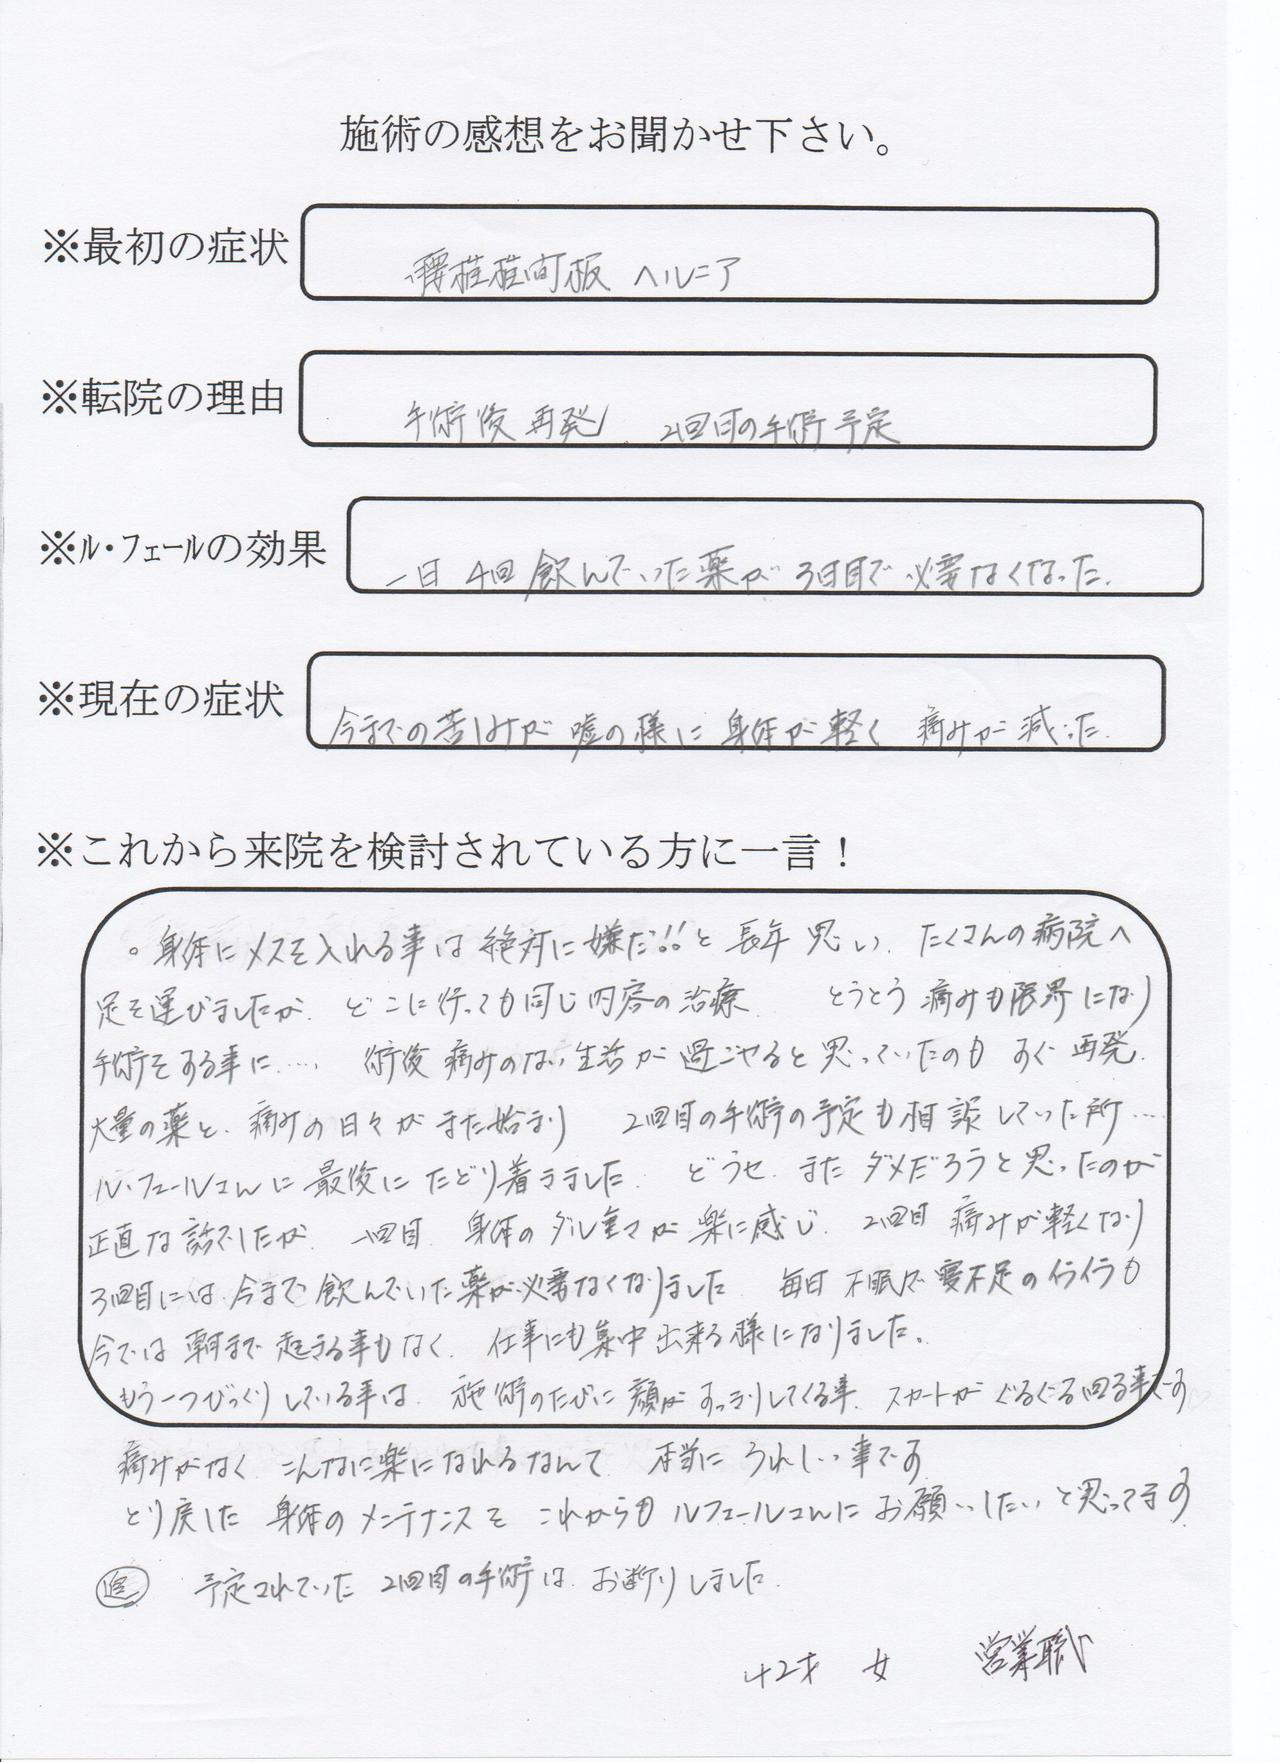 施術の感想をお聞かせ下さい。
※最初の症状
腰椎椎間板 ヘルニア
※転院の理由
手術後 再発 、2回目の手術予定
※ル・フェールの効果
一日 4回 飲んでいた薬が 3日目で 必要なくなった.
※現在の症状
今までの苦しみが 嘘の様に 身体が軽く 痛みが減った.
※これから来院を検討されている方に一言！
○身体にメスを入れる事は絶対に嫌だ!!と 長年思い、たくさんの病院へ
足を運びましたが、どこに行っても同じ内容の治療、 とうとう痛みも限界になり
手術をする事に….. 術後 痛みのない生活が過ごせると思っていたのも すぐ再発.
大量の薬と、痛みの日々がまた始まり 2回目の手術の予定も相談していた所…
ル・フェールさんに最後にたどり着きました。どうせ、まだダメだろうと思ったのが
正直な話でしたが、一回目、身体のダル重さが楽に感じ、2回目 痛みが軽くなり
3回目には、今まで飲んでいた薬が必要なくなりました 毎日不眠で寝不足のイライラも
今では朝まで起きる事もなく、仕事にも集中出来る様になりました。
もう一つびっくりしている事は、施術のたびに顔がすっきりしてくる事、スカートがぐるぐる回る事です
痛みがなく こんなに楽になれるなんて 本当に うれしい事です
とり戻した 身体のメンテナンスを これからもルフェールさんにお願いしたいと思ってます
追 予定されていた 2回目の手術は、お断りしました.
42才 女 営業職